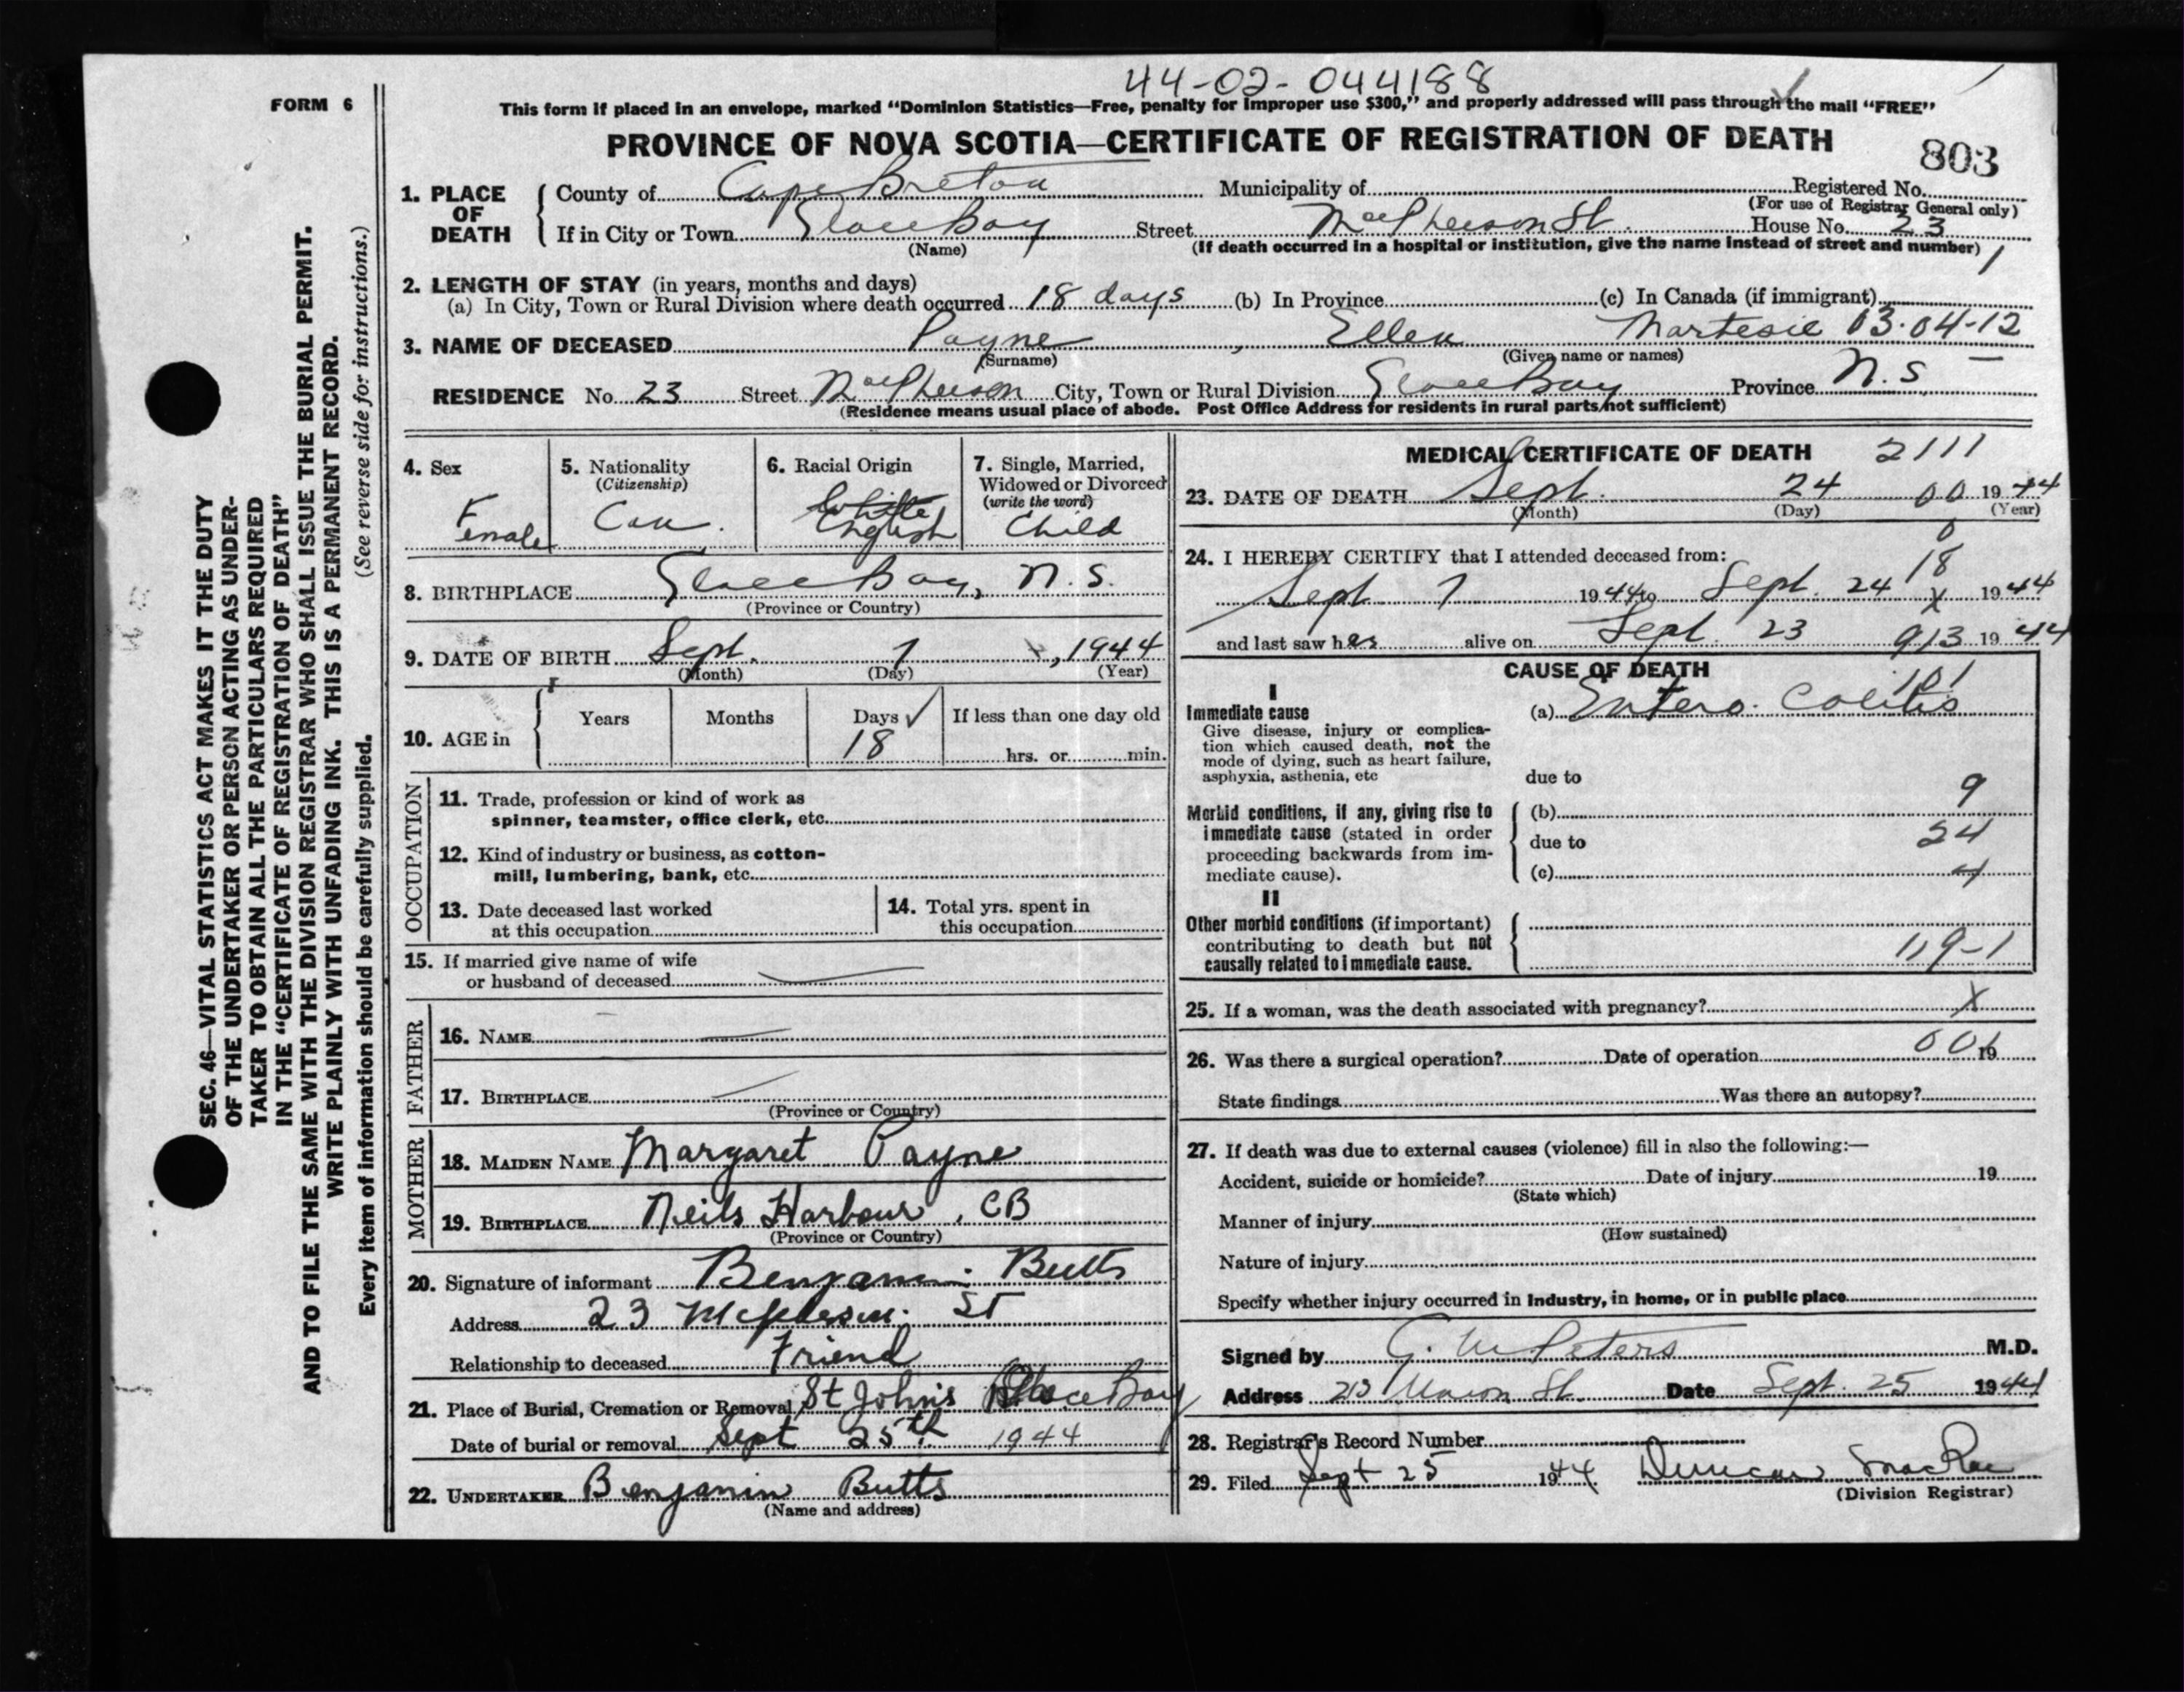 44-02-044188
FORM 6
This form if placed in an envelope, marked "Dominion Statistics—Free, penalty for improper use $300," and properly addressed will pass through the mail "FREE"
PROVINCE OF NOVA SCOTIA—CERTIFICATE OF REGISTRATION OF DEATH
803
1. PLACE OF DEATH
County of Cape Breton Municipality of Registered No.
(For use of Registrar General only)
If in City or Town Glace Bay Street MacPherson St. House No. 23
(Name) (If death occurred in a hospital or institution, give the name instead of street and number) 1
2. LENGTH OF STAY (in years, months and days)
(a) In City, Town or Rural Division where death occurred 18 days (b) In Province (c) In Canada (if immigrant)
3. NAME OF DECEASED Payne, Ellen 03-04-12
(Surname) (Given name or names)
RESIDENCE No. 23 Street MacPherson City, Town or Rural Division Glace Bay Province N.S.
(Residence means usual place of abode. Post Office Address for residents in rural parts not sufficient)
4. Sex
Female
5. Nationality
(Citizenship)
Can.
6. Racial Origin
White
English
7. Single, Married,
Widowed or Divorced
(write the word)
Child
8. BIRTHPLACE Glace Bay, N.S.
(Province or Country)
9. DATE OF BIRTH Sept. 7, 1944
(Month) (Day) (Year)
10. AGE in
Years Months Days If less than one day old
18 hrs. or min.
OCCUPATION
11. Trade, profession or kind of work as
spinner, teamster, office clerk, etc.
12. Kind of industry or business, as cotton-
mill, lumbering, bank, etc.
13. Date deceased last worked
at this occupation
14. Total yrs. spent in
this occupation
15. If married give name of wife
or husband of deceased
FATHER
16. NAME
17. BIRTHPLACE
(Province or Country)
MOTHER
18. MAIDEN NAME Margaret Payne
19. BIRTHPLACE Neils Harbour, CB
(Province or Country)
20. Signature of informant Benjamin Butts
Address 23 McPherson St
Relationship to deceased Friend
21. Place of Burial, Cremation or Removal St John's Glace Bay
Date of burial or removal Sept 25th 1944
22. UNDERTAKER Benjanin Butts
(Name and address)
MEDICAL CERTIFICATE OF DEATH 2111
23. DATE OF DEATH Sept. 24 00 1944
(Month) (Day) (Year)
0
24. I HEREBY CERTIFY that I attended deceased from:
18
Sept 7 1944 to Sept. 24 X 1944
and last saw her alive on Sept. 23 913 1944
CAUSE OF DEATH
101
I
Immediate cause
Give disease, injury or complica-
tion which caused death, not the
mode of dying, such as heart failure,
asphyxia, asthenia, etc
(a) Entero-Colitis
due to
9
Morbid conditions, if any, giving rise to
immediate cause (stated in order
proceeding backwards from im-
mediate cause).
(b)
due to 24
(c) 4
II
Other morbid conditions (if important)
contributing to death but not
causally related to immediate cause.
119-1
25. If a woman, was the death associated with pregnancy? X
26. Was there a surgical operation? Date of operation 19
State findings Was there an autopsy?
27. If death was due to external causes (violence) fill in also the following:—
Accident, suicide or homicide? Date of injury 19
(State which)
Manner of injury
(How sustained)
Nature of injury
Specify whether injury occurred in industry, in home, or in public place
Signed by Peters M.D.
Address Union St. Date Sept. 25 1944
28. Registrar's Record Number
29. Filed Sept 25 1944 Duncan MacRae
(Division Registrar)
SEC. 46—VITAL STATISTICS ACT MAKES IT THE DUTY
OF THE UNDERTAKER OR PERSON ACTING AS UNDER-
TAKER TO OBTAIN ALL THE PARTICULARS REQUIRED
IN THE "CERTIFICATE OF REGISTRATION OF DEATH"
AND TO FILE THE SAME WITH THE DIVISION REGISTRAR WHO SHALL ISSUE THE BURIAL PERMIT.
WRITE PLAINLY WITH UNFADING INK. THIS IS A PERMANENT RECORD.
Every item of information should be carefully supplied. (See reverse side for instructions.)